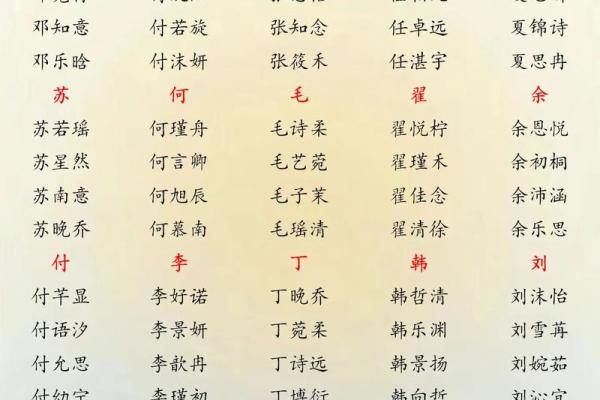 邓知意 付若旋 张知念 任卓远 夏锦诗
邓乐晗 付沫妍 张筱禾 任湛宇 夏思冉
苏 何 毛 翟 余
苏若瑶 何瑾舟 毛诗柔 翟悦柠 余恩悦
苏星然 何言卿 毛艺菀 翟瑾禾 余初桐
苏南意 何旭辰 毛子茉 翟佳念 余沛涵
苏晚乔 何慕南 毛瑶清 翟清徐 余乐思
付 李 丁 韩 刘
付芊显 李好诺 丁晚乔 韩哲清 刘沫怡
付语汐 李景妍 丁菀柔 韩乐渊 刘雪苒
付允思 李歆冉 丁诗远 韩景扬 刘婉茹
付幼宁 李瑾初 丁博衍 韩向哲 刘沁宜